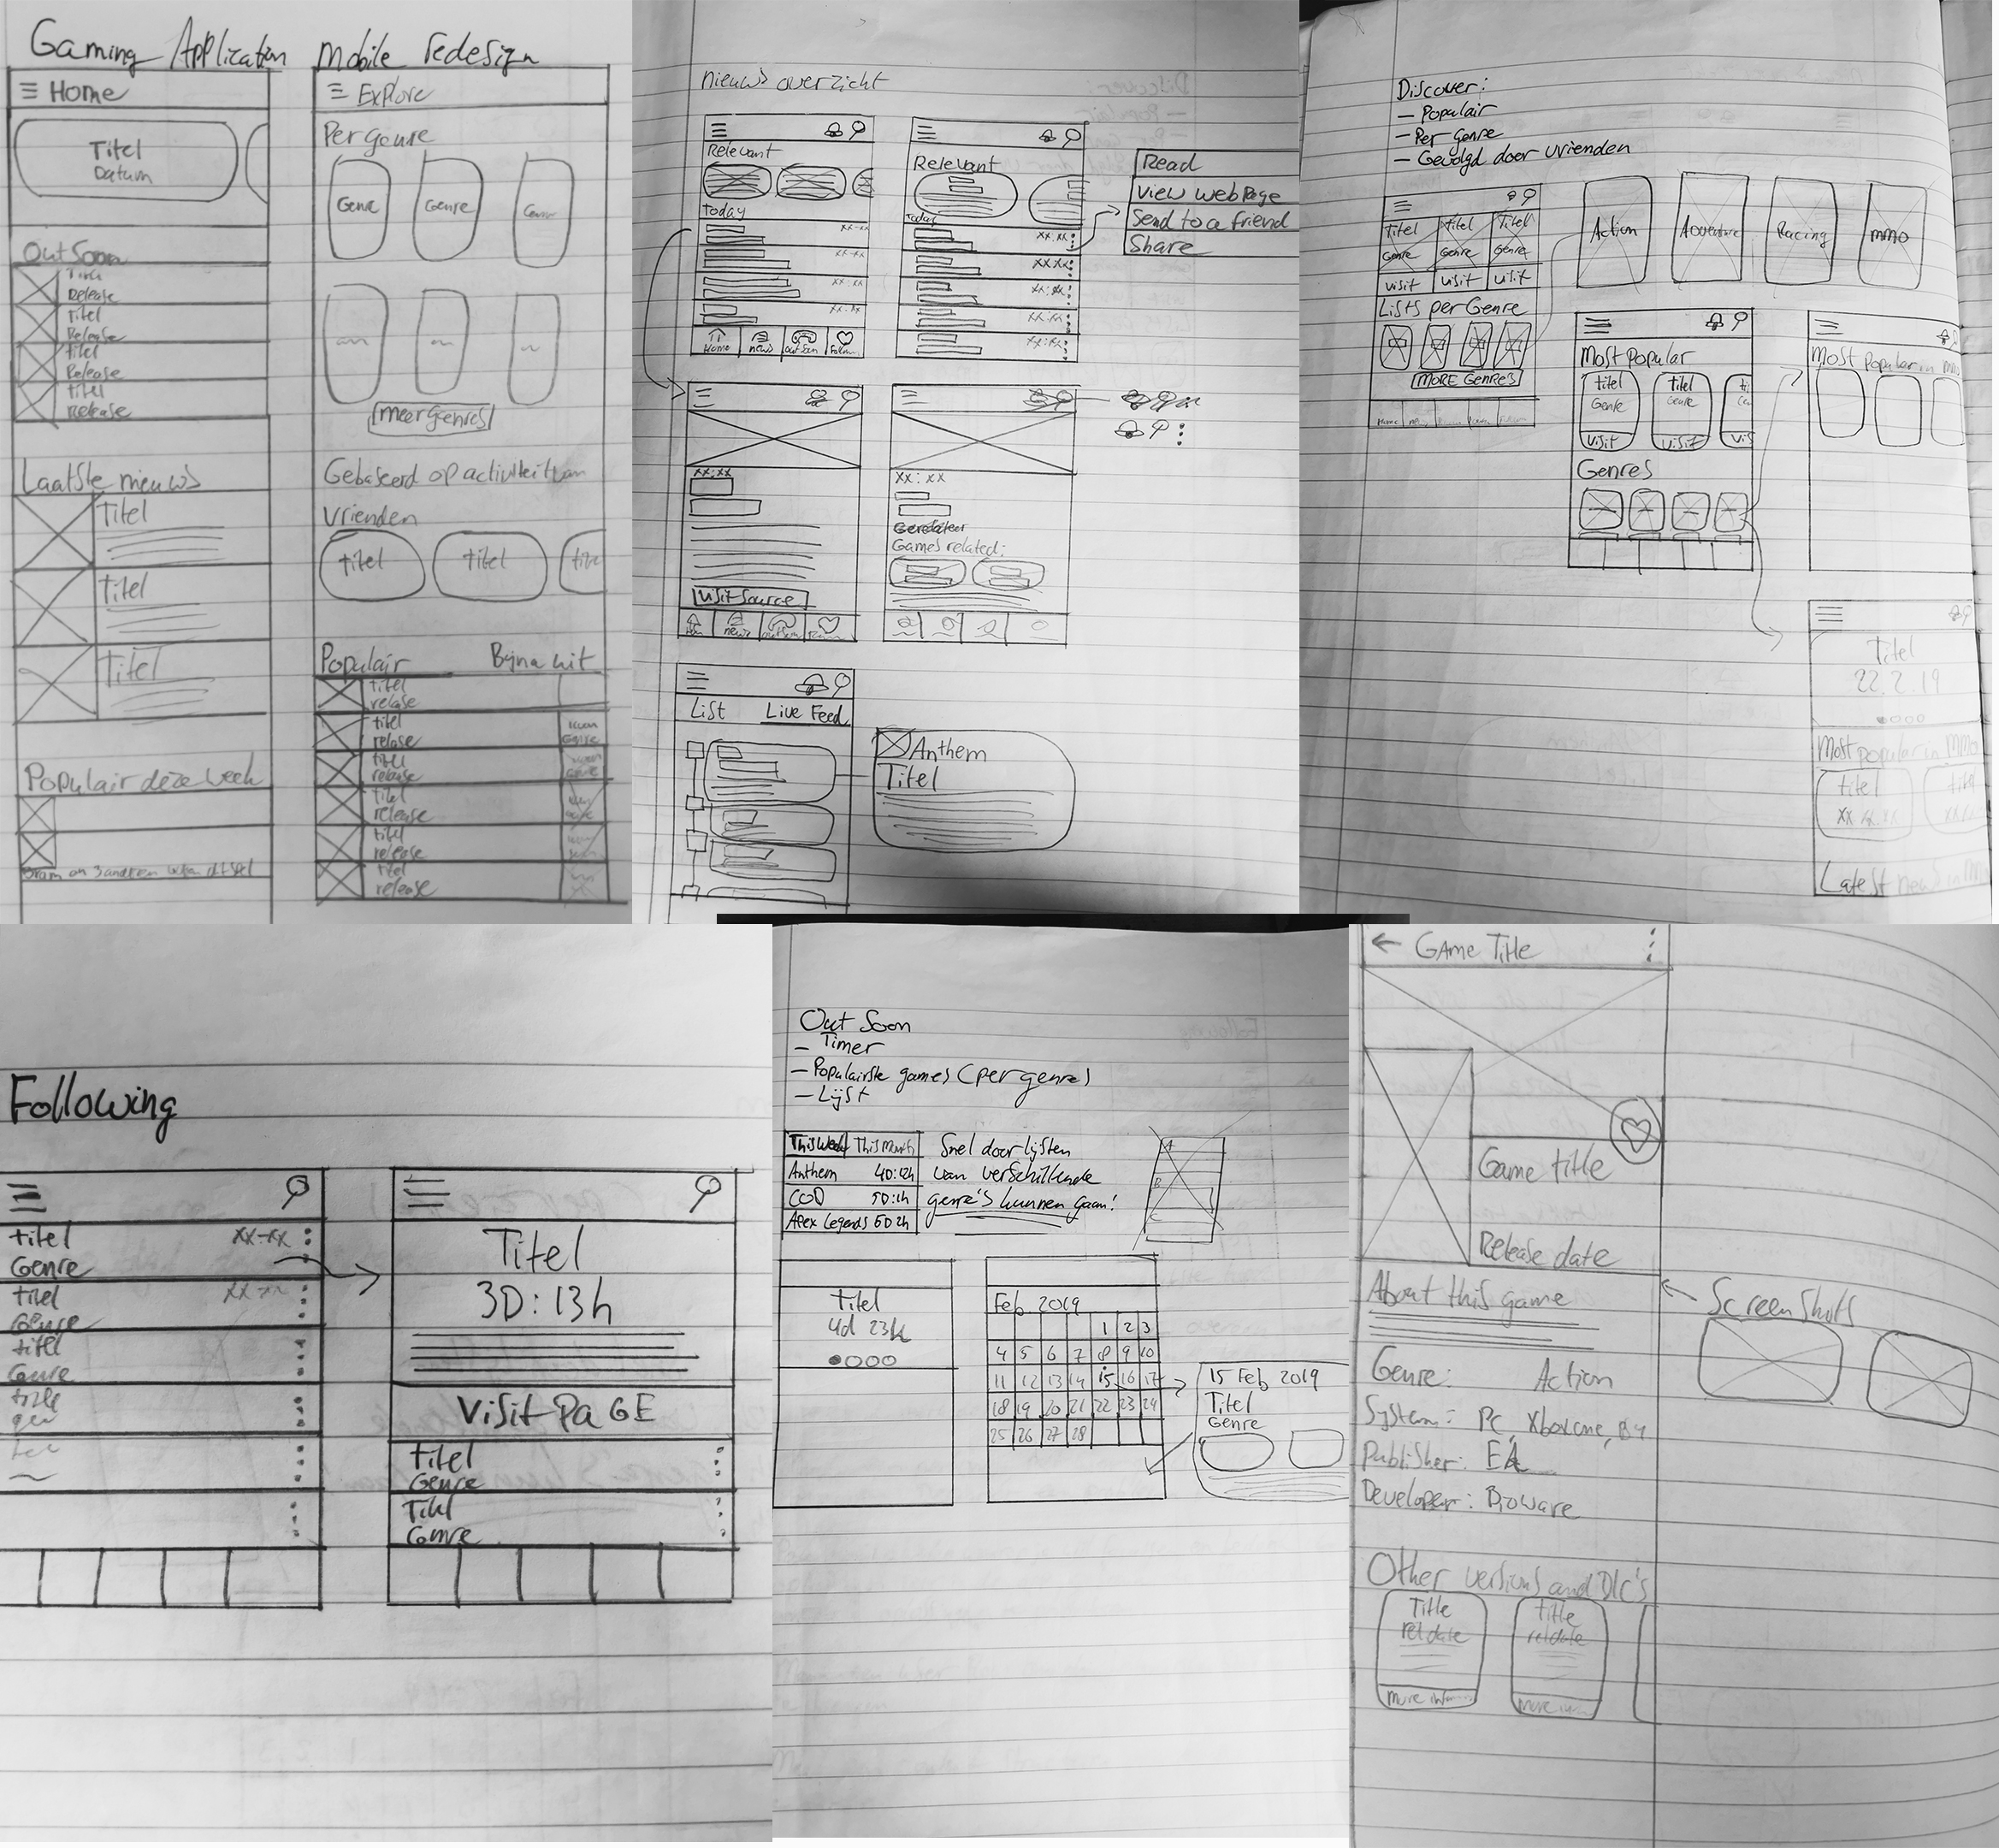 Gaming Application Mobile redesign
Home
Titel
Datum
Out Soon
Titel
Release
Titel
Release
Titel
Release
Titel
Release
Laatste nieuws
Titel
Titel
Titel
Populair deze week
Explore
Per genre
Genre Genre Genre
Meer genres
Gebaseerd op activiteit van
vrienden
titel titel titel
Populair Bijna uit
titel
release
titel
release
titel
release
titel
release
titel
release
titel
release
nieuws overzicht
Relevant
Today
xx-xx
xx-xx
xx:xx
xx:xx
Home news out soon Follow
Relevant
Today
xx:xx
xx:xx
xx:xx
xx:xx
xx:xx
Read
View webpage
Send to a friend
Share
xx:xx
Visit Source
news
xx:xx
Games related:
List Live Feed
Anthem
Titel
Discover:
- Populair
- Per genre
- Gevolgd door vrienden
Titel Titel Titel
Genre Genre Genre
visit visit visit
Lists per Genre
MORE GENRES
Action Adventure Racing MMO
Most Popular
titel titel
Genre Genre
visit visit vis
Genres
Most Popular in MMO
Titel
22.2.19
Most popular in MMO
titel
xx.xx.xx
Latest news in MMO
Following
titel xx-xx
Genre
titel
Genre
titel
Genre
Titel
3D:13h
Visit PAGE
titel
Genre
Titel
Genre
Out Soon
- Timer
- Populairste games (per genre)
- Lijst
This week This Month
Anthem 4D:12h
COD 5D:1h
Apex Legends 5D 2h
Snel door lijsten
van verschillende
genre's kunnen gaan!
A
B
C
Titel
4d 23h
Feb 2019
1 2 3
4 5 6 7 8 9 10
11 12 13 14 15 16 17
18 19 20 21 22 23 24
25 26 27 28
15 Feb 2019
Titel
Genre
← GAME Title
Game title
Release date
About this game
Screenshots
Genre: Action
System: PC, Xboxone,
Publisher: EA
Developer: Bioware
Other versions and DLC's
Title Title
rel date rel date
more info